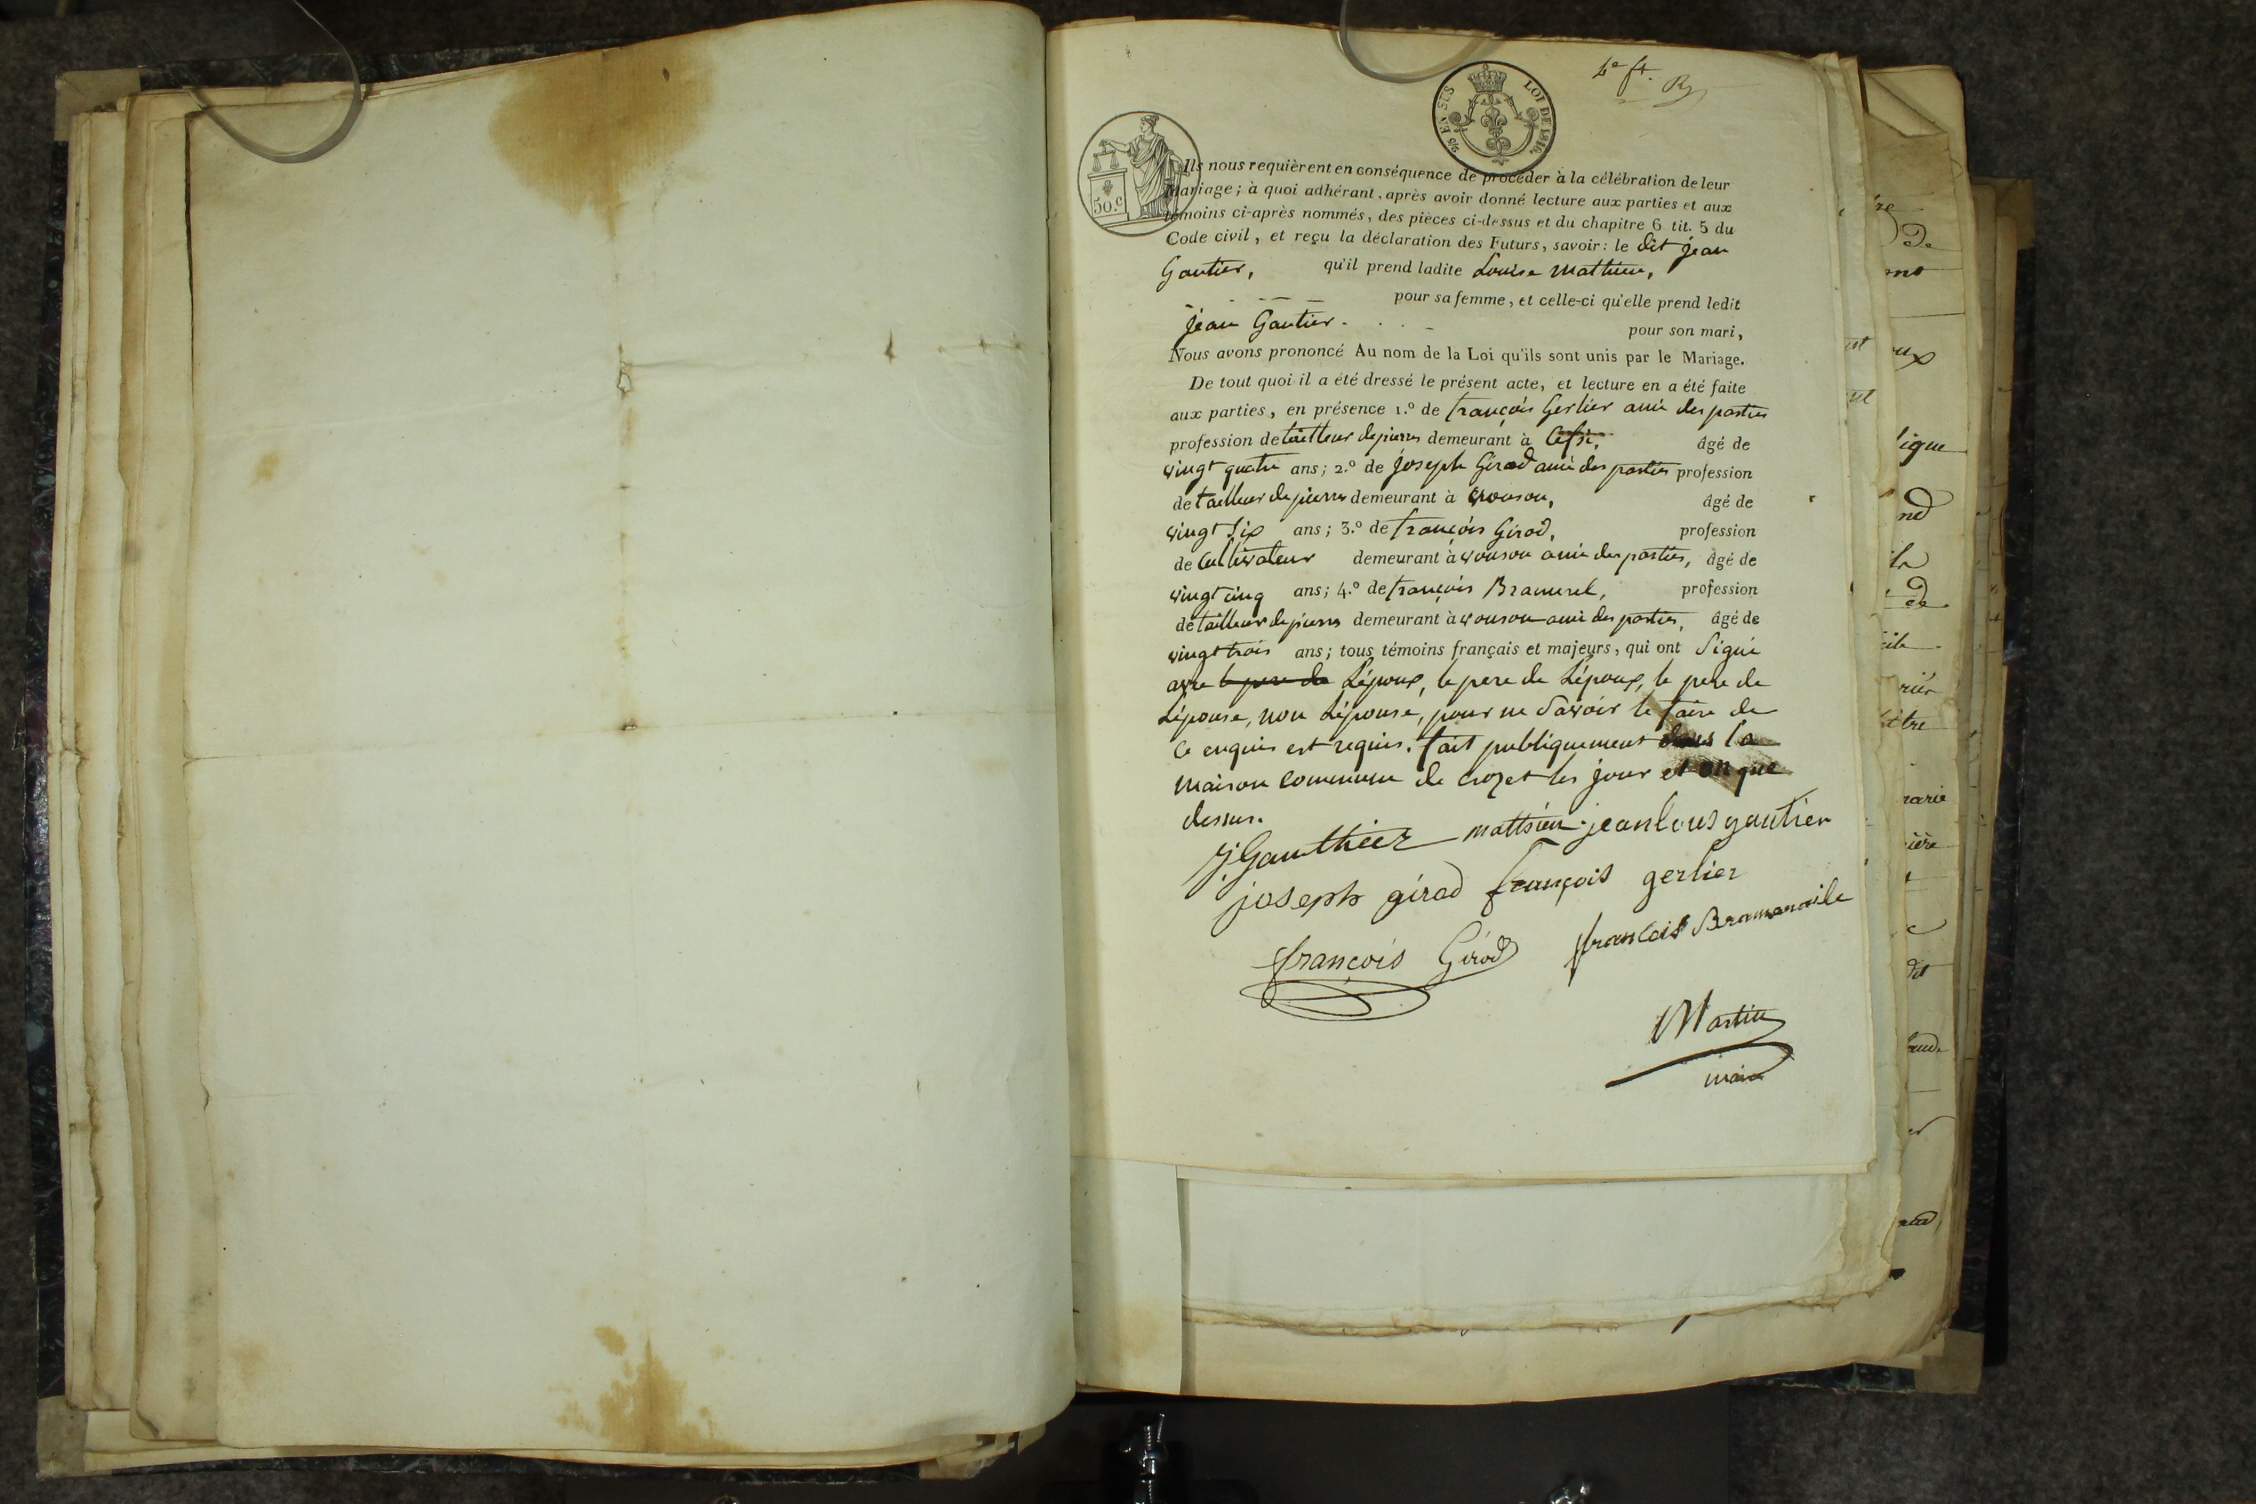 4e ft. Ry
5/0 EN SUS LOI DE 1816.
50.c
Ils nous requièrent en conséquence de procéder à la célébration de leur
Mariage; à quoi adhérant, après avoir donné lecture aux parties et aux
témoins ci-après nommés, des pièces ci-dessus et du chapitre 6 tit. 5 du
Code civil, et reçu la déclaration des Futurs, savoir: le dit jean
Gautier, qu'il prend ladite Louise Mathieu,
pour sa femme, et celle-ci qu'elle prend ledit
jean Gautier. pour son mari,
Nous avons prononcé Au nom de la Loi qu'ils sont unis par le Mariage.
De tout quoi il a été dressé le présent acte, et lecture en a été faite
aux parties, en présence 1.º de françois Gerlier amie des parties
profession de tailleur de pierres demeurant à âgé de
vingt quatre ans; 2.º de joseph Girod amie des parties profession
de tailleur de pierres demeurant à vrouson, âgé de
vingt six ans; 3.º de françois Girod, profession
de Cultivateur demeurant à vouson amie des parties, âgé de
vingt cinq ans; 4.º de françois Bramerel, profession
de tailleur de pierres demeurant à vouson amie des parties, âgé de
vingt trois ans; tous témoins français et majeurs, qui ont Signé
avec le pere de Lépoux, le pere de Lépoux, le pere de
Lépouse, non Lépouse, pour ne Savoir le faire de
Ce enquis est requis. fait publiquement dans la
maison commune de crozet les jour et an que
dessus.
J. Gauthier mattsieu jean louis gautier
joseph girod françois gerlier
françois Girod francois Brameraile
Martin
maire